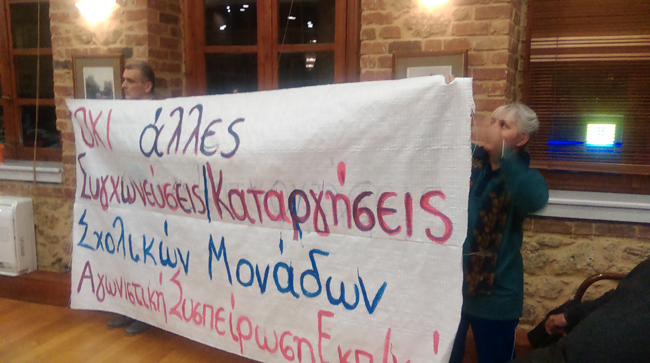 ΌΧΙ άλλες
Συγχωνεύσεις/Καταργήσεις
Σχολικών Μονάδων
Αγωνιστική Συσπείρωση